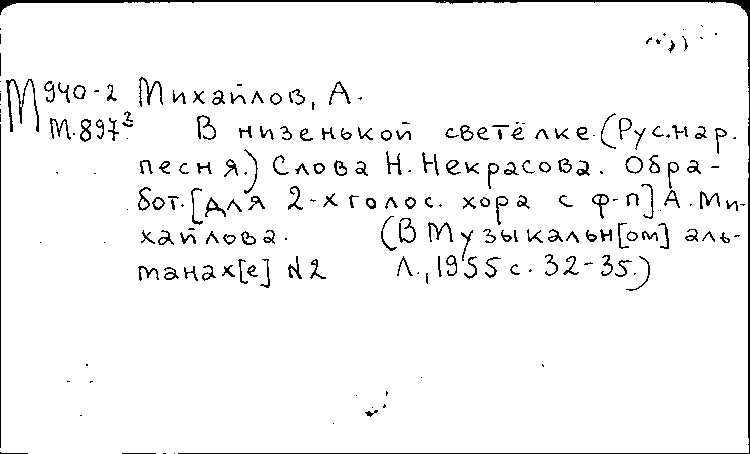 М 940-2 Михайлов, А.
М.897³ В низенькой светёлке.(Рус.нар.
песня.) Слова Н. Некрасова. Обра-
бот.[для 2-х голос. хора с ф-п] А. Ми-
хайлова. (В Музыкальн[ом] аль-
манах[е] №2 Л., 1955 с. 32-35.)